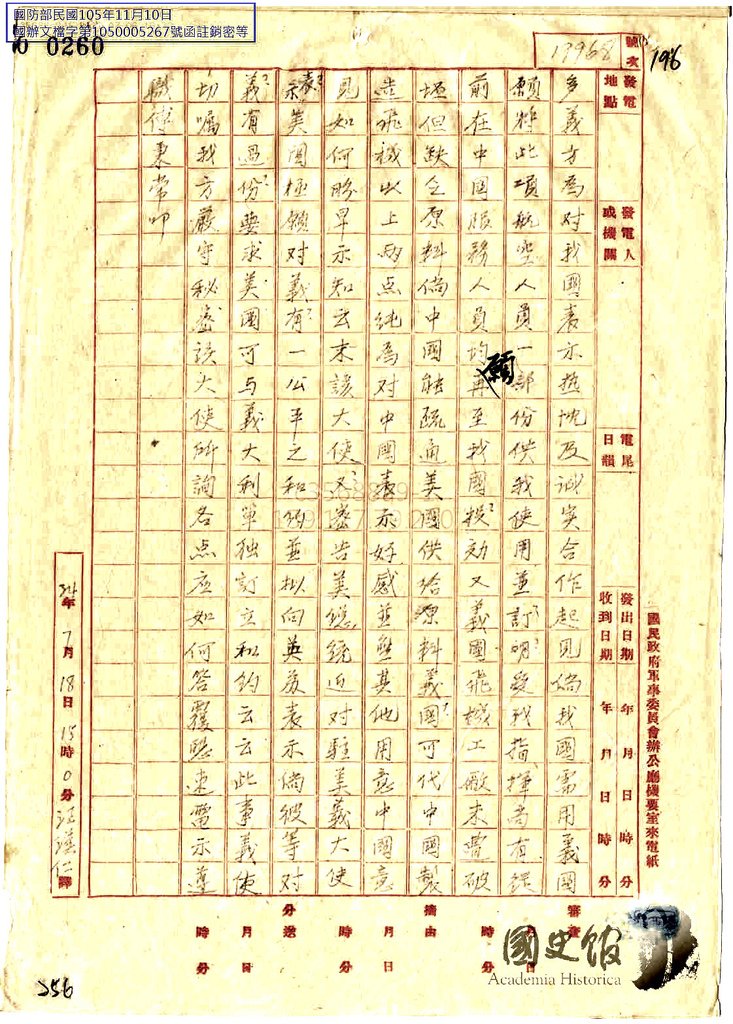 國防部民國105年11月10日
國辦文檔字第1050005267號函註銷密等
0260
號次
19968
196
發電地點
發電人或機關
電尾日韻
發出日期 年 月 日 時 分
收到日期 年 月 日 時 分
國民政府軍事委員會辦公廳機要室來電紙
多義方為對我國表示熱忱及誠實合作起見倘我國需用義國
願將此項航空人員一部份供我使用並訂明受我指揮者有從
前在中國服務人員均願再至我國投效又義國飛機工廠未曾破
壞但缺乏原料倘中國能疏通美國供給原料義國可代中國製
造飛機以上兩点純為对中國表示好感並無其他用意中國意
見如何盼早示知云末該大使又密告美總統近对駐美義大使
表示美國極願对義有一公平之和約並擬向英俄表示倘彼等对
義有過份要求美國可与義大利單独訂立和約云云此事義使
切囑我方嚴守秘密該大使所詢各点应如何答覆懇速電示遵
職傅秉常叩
34年7月18日15時0分 汪 譯
審查 月 日 時 分
摘由 月 日 時 分
分送 月 日 時 分
國史館
Academia Historica
256